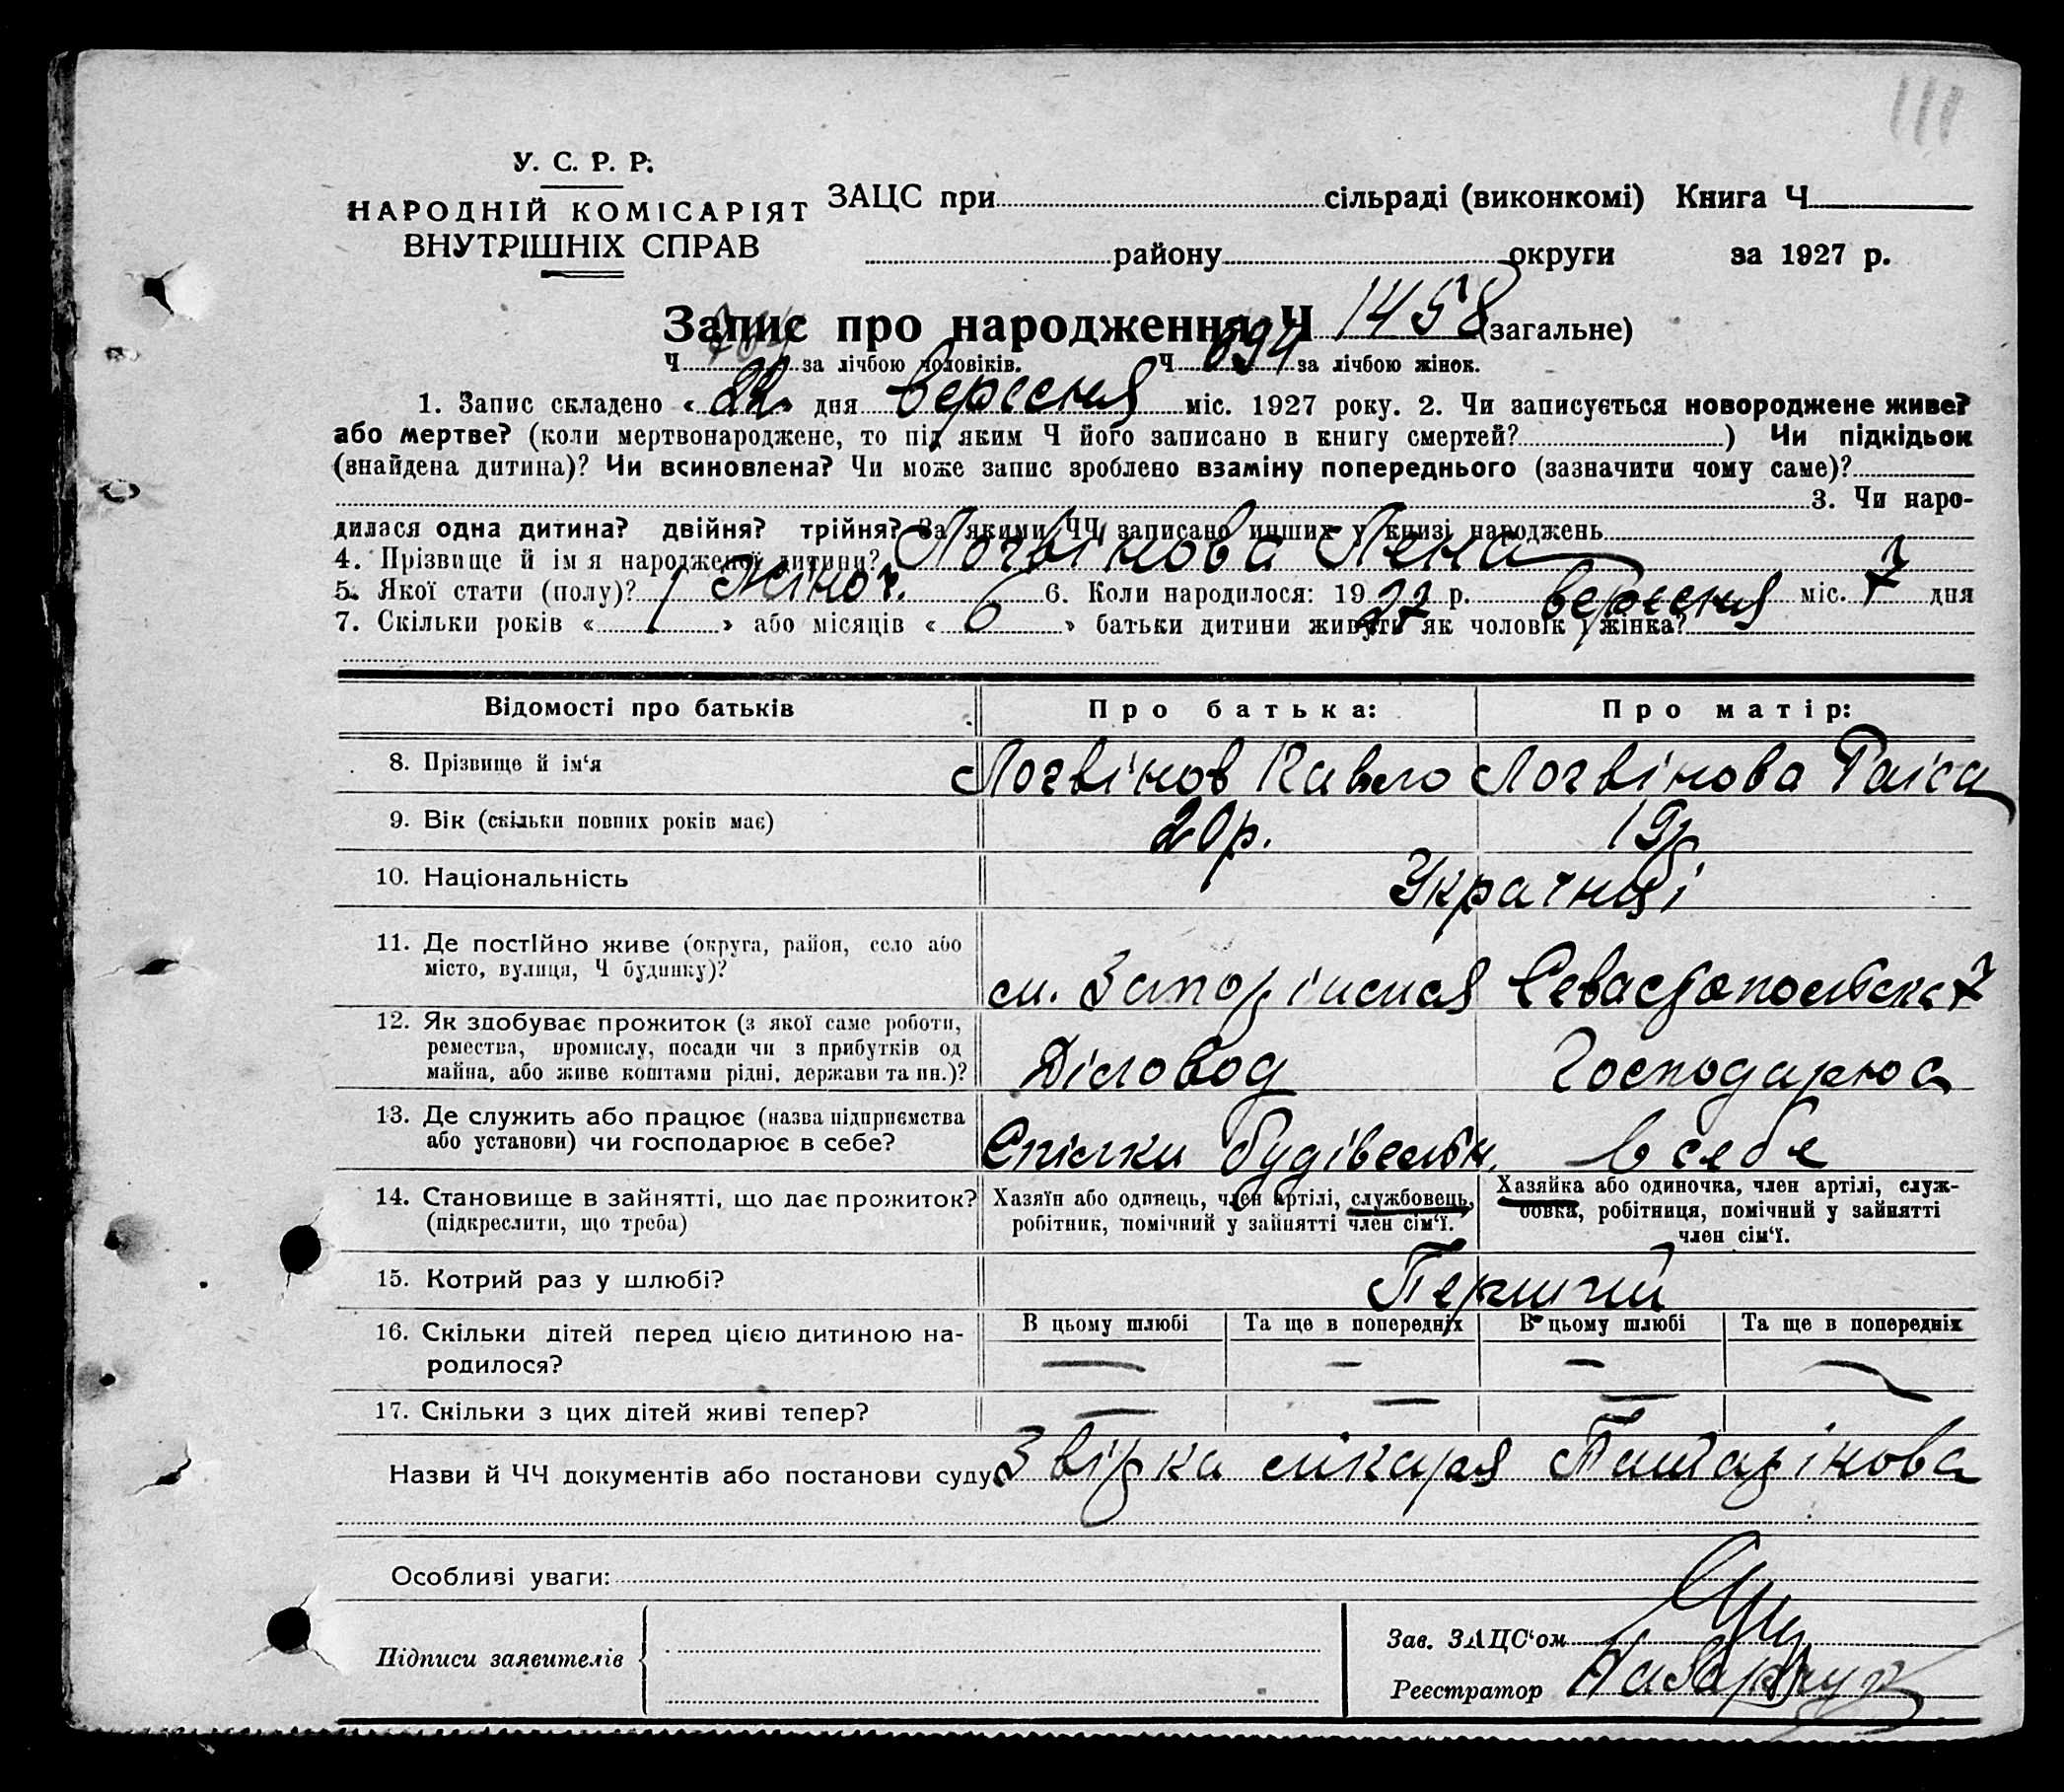 111
У. С. Р. Р.
НАРОДНІЙ КОМІСАРІЯТ
ВНУТРІШНІХ СПРАВ
ЗАЦС при сільраді (виконкомі) Книга Ч
району округи за 1927 р.
Запис про народження Ч 1458 (загальне)
Ч 764 за лічбою чоловіків. Ч 694 за лічбою жінок.
1. Запис складено « 22 » дня вересня міс. 1927 року. 2. Чи записується новороджене живе?
або мертве? (коли мертвонароджене, то під яким Ч його записано в книгу смертей? ) Чи підкідьок
(знайдена дитина)? Чи всиновлена? Чи може запис зроблено взаміну попереднього (зазначити чому саме)?
3. Чи наро-
дилася одна дитина? двійня? трійня? За якими ЧЧ записано инших у книзі народжень
4. Прізвище й ім'я народженої дитини? Логвінова Лена
5. Якої стати (полу)? Жіноч. 6. Коли народилося: 19 27 р. вересня міс. 7 дня
7. Скільки років « 1 » або місяців « 6 » батьки дитини живуть як чоловік і жінка?
Відомості про батьків Про батька: Про матір:
8. Прізвище й ім‘я Логвінов Павло Логвінова Раіса
9. Вік (скільки повних років має) 20р. 19р
10. Національність Українці
11. Де постійно живе (округа, район, село або
місто, вулиця, Ч будинку)? м. Запоріжжя Севастопольска 7
12. Як здобуває прожиток (з якої саме роботи,
ремества, промислу, посади чи з прибутків од
майна, або живе коштами рідні, держави та ин.)? Діловод Господарює
13. Де служить або працює (назва підприємства
або установи) чи господарює в себе? Спілки будівельн. в себе
14. Становище в зайнятті, що дає прожиток?
(підкреслити, що треба)
Хазяїн або одинець, член артілі, службовець,
робітник, помічний у зайнятті член сім‘ї.
Хазяйка або одиночка, член артілі, служ-
бовка, робітниця, помічний у зайнятті
член сім‘ї.
15. Котрий раз у шлюбі? Перший
16. Скільки дітей перед цією дитиною на-
родилося?
В цьому шлюбі Та ще в попередніх В цьому шлюбі Та ще в попередніх
— — — —
17. Скільки з цих дітей живі тепер? — — — —
Назви й ЧЧ документів або постанови суду: Звірка лікаря
Особливі уваги:
Підписи заявителів
Зав. ЗАЦС‘ом
Реєстратор